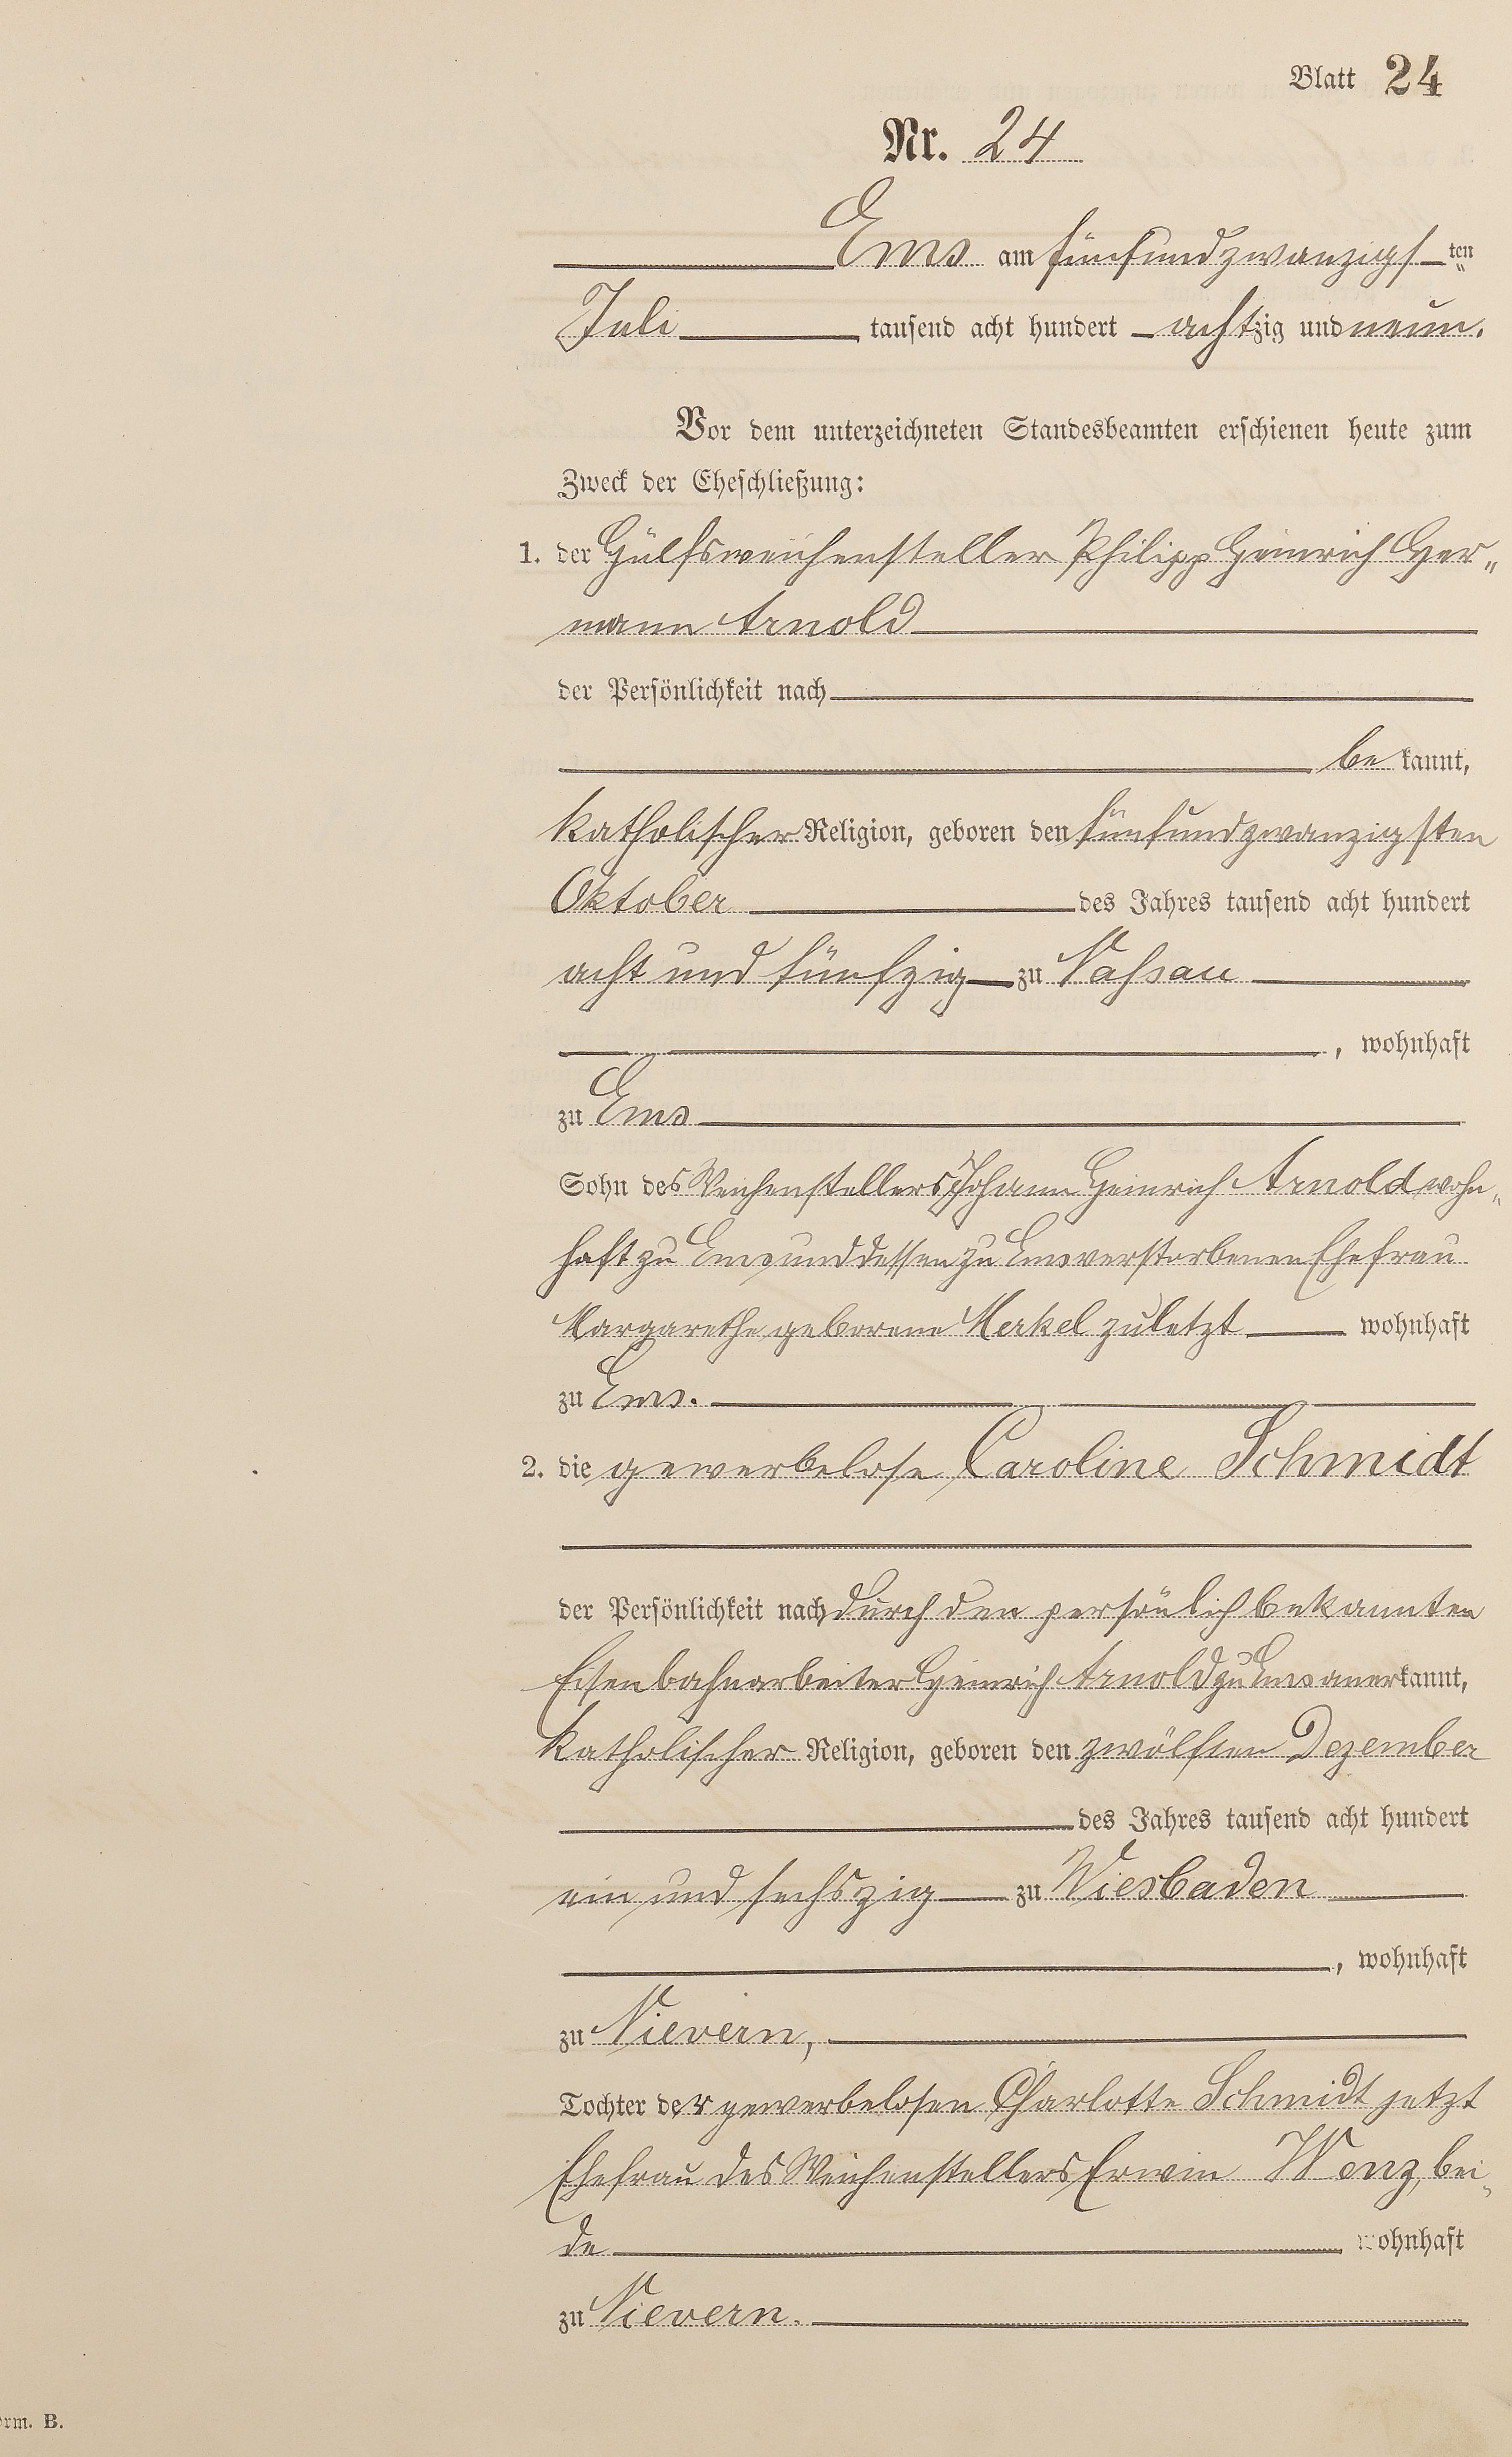 Blatt 24
Nr. 24
Ems am fünfundzwanzigs ten
Juli tausend acht hundert achtzig und neun.
Vor dem unterzeichneten Standesbeamten erschienen heute zum
Zweck der Eheschließung:
1. der Hülfsweichensteller Philipp Heinrich Her„
mann Arnold
der Persönlichkeit nach
be kannt,
katholischer Religion, geboren den fünfundzwanzigsten
Oktober des Jahres tausend acht hundert
acht und fünfzig zu Nassau
, wohnhaft
zu Ems
Sohn des Weichenstellers Johann Heinrich Arnold wohn„
haft zu Ems und dessen zu Ems verstorbenen Ehefrau
Margarethe geborene Merkel zuletzt wohnhaft
zu Ems.
2. die gewerbelose Caroline Schmidt
der Persönlichkeit nach durch den persönlich bekannten
Eisenbahnarbeiter Heinrich Arnold zu Ems anerkannt,
katholischer Religion, geboren den zwölften Dezember
des Jahres tausend acht hundert
ein und sechszig zu Wiesbaden
, wohnhaft
zu Nievern,
Tochter der gewerbelosen Charlotte Schmidt jetzt
Ehefrau des Weichenstellers Erwin Wenz, bei„
de wohnhaft
zu Nievern.
orm. B.